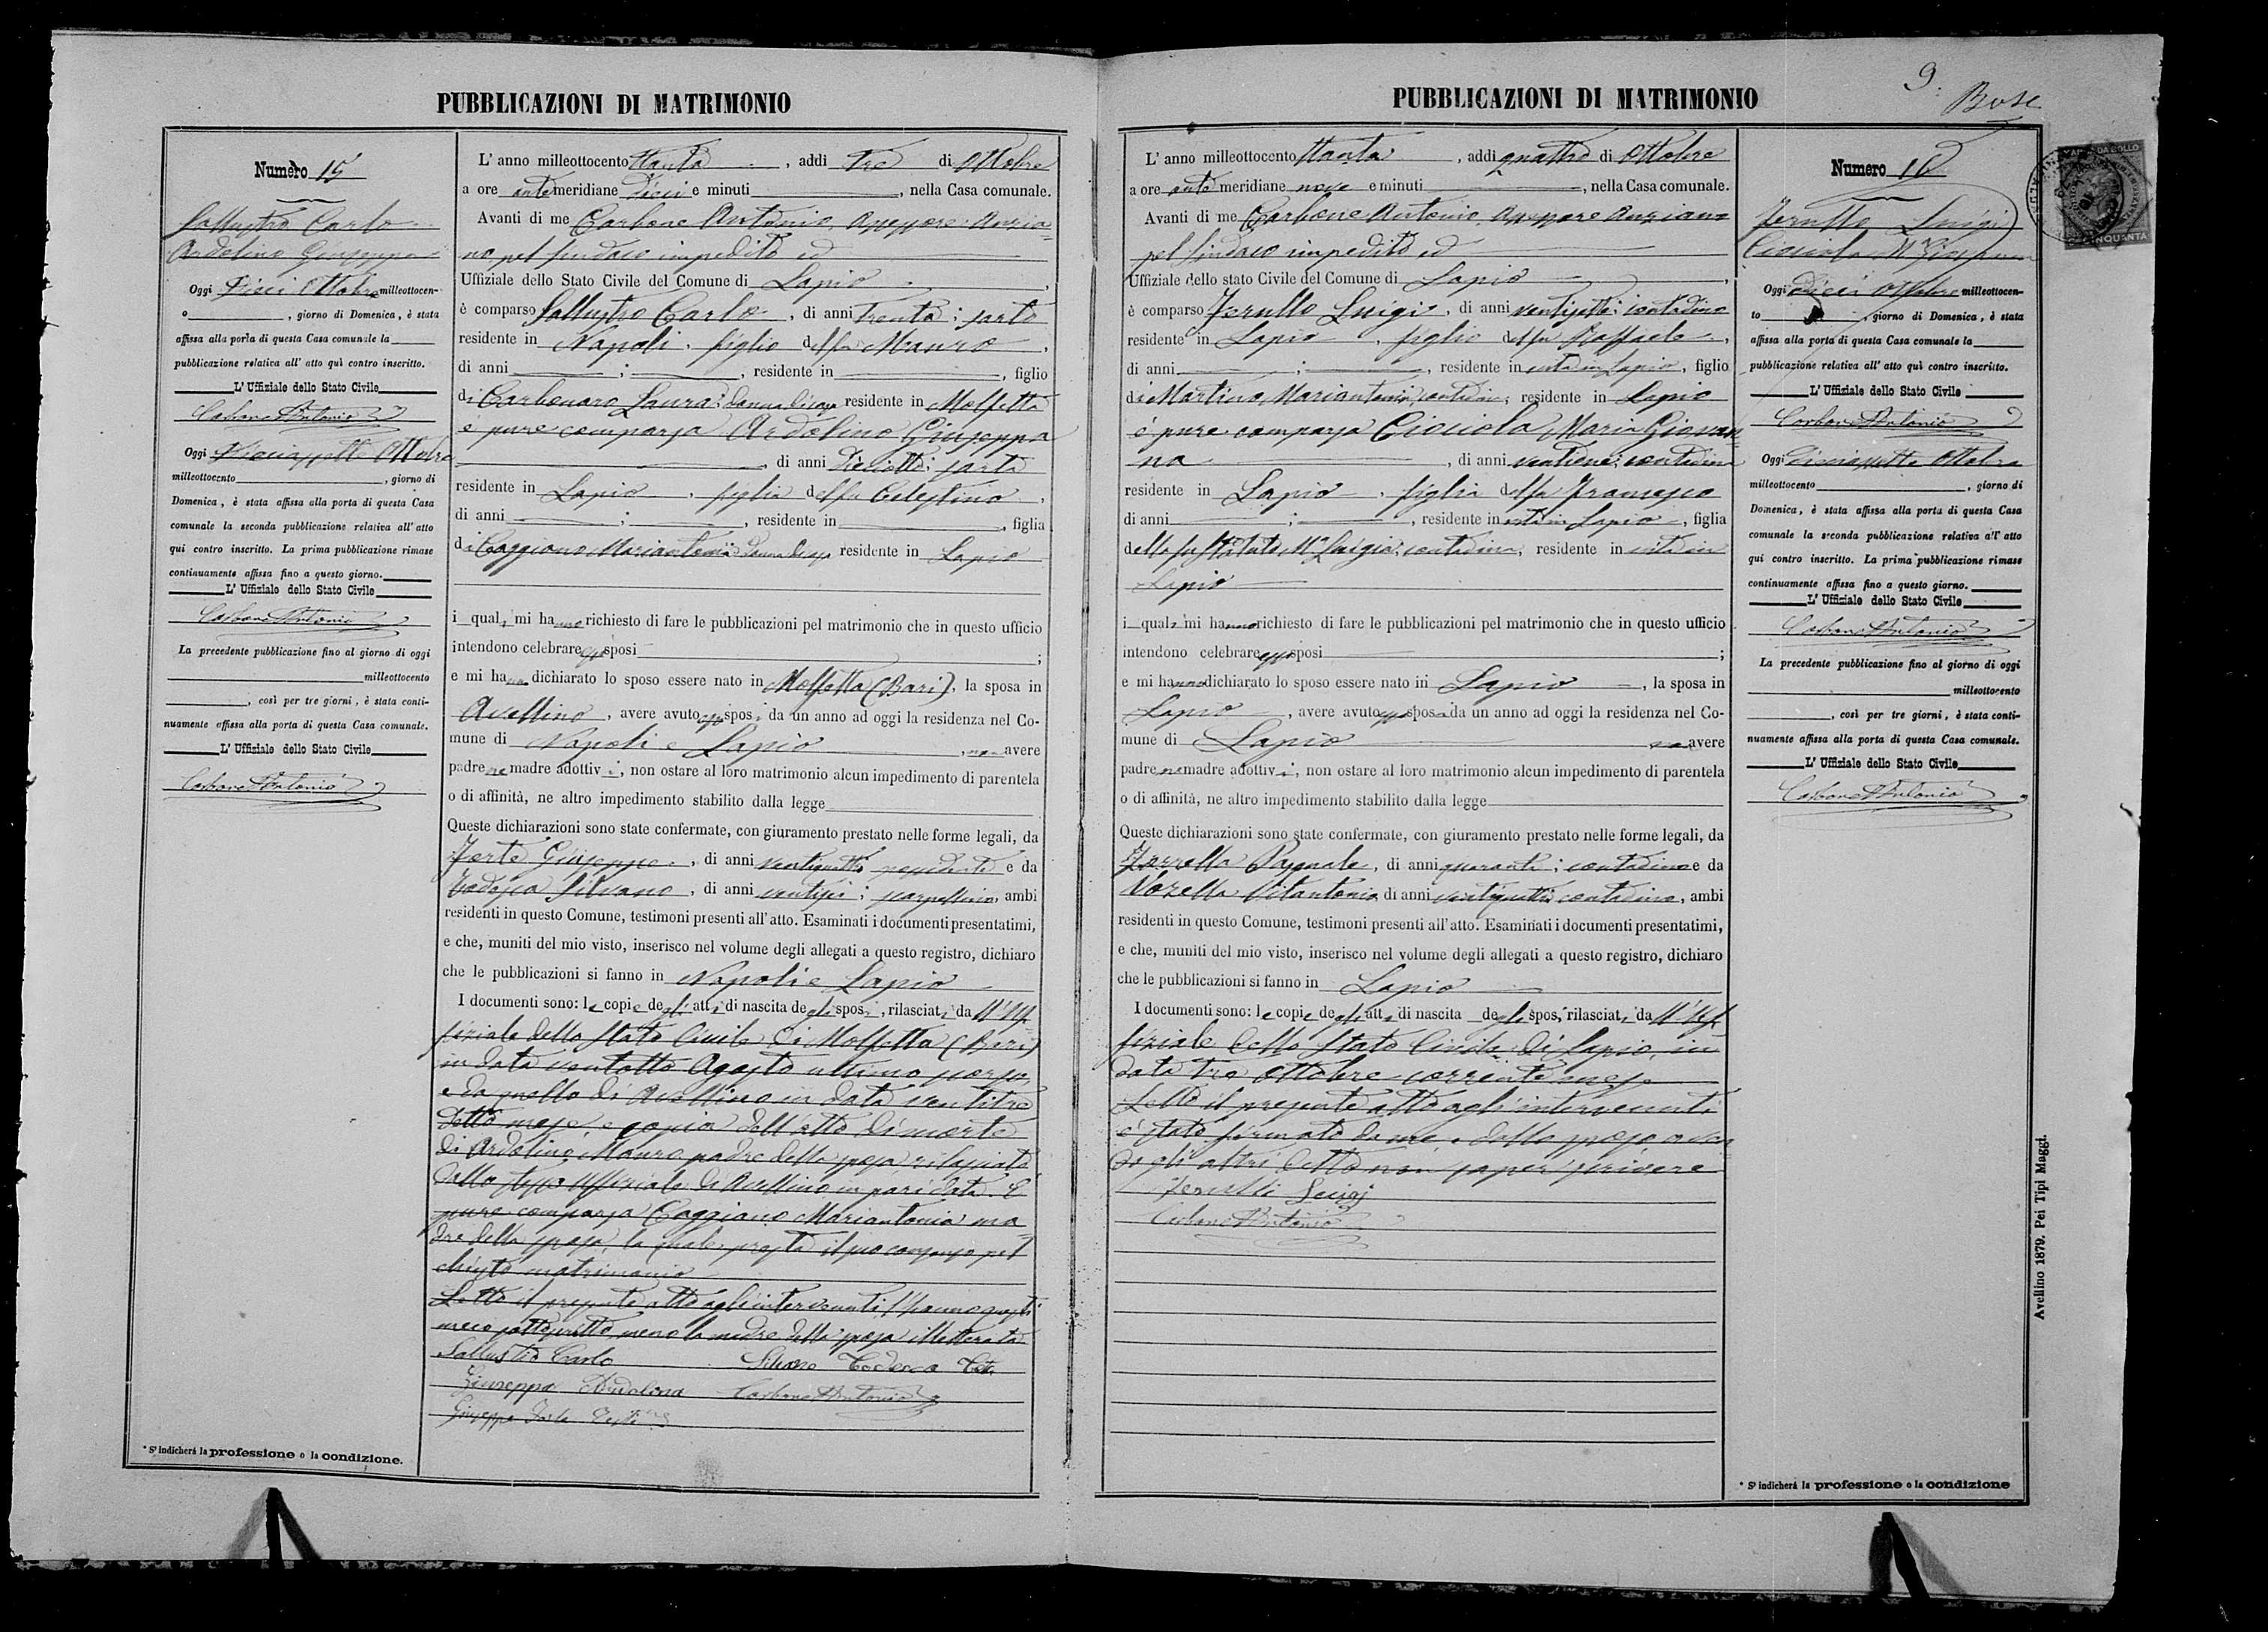 PUBBLICAZIONI DI MATRIMONIO
Numero 15
Sallustro Carlo
Ardolino Giuseppa
Oggi Dieci Ottobre milleottocen-
o , giorno di Domenica, è stata
affissa alla porta di questa Casa comunale la
pubblicazione relativa all' atto quì contro inscritto.
L' Uffiziale dello Stato Civile
Carbone Antonio
Oggi Diciassette Ottobre
milleottocento , giorno di
Domenica, è stata affissa alla porta di questa Casa
comunale la seconda pubblicazione relativa all' atto
qui contro inscritto. La prima pubblicazione rimase
continuamente affissa fino a questo giorno.
L' Uffiziale dello Stato Civile
Carbone Antonio
La precedente pubblicazione fino al giorno di oggi
milleottocento
, così per tre giorni, è stata conti-
nuamente affissa alla porta di questa Casa comunale.
L' Uffiziale dello Stato Civile
Carbone Antonio
* Si indicherà la professione o la condizione.
L' anno milleottocento ttanta , addi tre di Ottobre
a ore ante meridiane dieci e minuti , nella Casa comunale.
Avanti di me Carbone Antonio, Assessore Anzia-
no pel Sindaco impedito ed
Uffiziale dello Stato Civile del Comune di Lapio ,
è comparso Sallustro Carlo , di anni trenta; sarto
residente in Napoli , figlio del fu Mauro ,
di anni ; , residente in , figlio
di Carbonaro Laura; donna di casa residente in Molfetta
e pure comparsa Ardolino Giuseppa
, di anni dieciotto; sarta
residente in Lapio , figlia del fu Celestino ,
di anni ; , residente in , figlia
di Caggiano Mariantonia donna di casa residente in Lapio
i quali mi hanno richiesto di fare le pubblicazioni pel matrimonio che in questo ufficio
intendono celebrare essi sposi ;
e mi hanno dichiarato lo sposo essere nato in Molfetta (Bari), la sposa in
Avellino , avere avuto essi sposi da un anno ad oggi la residenza nel Co-
mune di Napoli e Lapio , non avere
padre ne madre adottivi, non ostare al loro matrimonio alcun impedimento di parentela
o di affinità, ne altro impedimento stabilito dalla legge
Queste dichiarazioni sono state confermate, con giuramento prestato nelle forme legali, da
Forte Giuseppe , di anni ventiquattro possidente e da
Codesca Silvano , di anni ventisei; scarpellino, ambi
residenti in questo Comune, testimoni presenti all' atto. Esaminati i documenti presentatimi,
e che, muniti del mio visto, inserisco nel volume degli allegati a questo registro, dichiaro
che le pubblicazioni si fanno in Napoli e Lapio
I documenti sono: le copie degli atti di nascita degli sposi, rilasciati da ll' Uf-
fiziale dello Stato Civile di Molfetta (Bari)
in data ventotto Agosto ultimo scorso,
e da quello di Avellino in data ventitre
detto mese, e copia dell' atto di morte
di Ardolino Mauro padre della sposa rilasciata
dallo stesso Uffiziale di Avellino in pari data. È
pure comparsa Caggiano Mariantonia ma-
dre della sposa, la quale presta il suo consenso pel
chiesto matrimonio
Letto il presente atto agli intervenuti l' hanno questi
meco sottoscritto meno la madre della sposa illetterata
Sallustro Carlo Silvano Codesca
Giuseppa Ardolino Carbone Antonio
Giuseppe Forte
PUBBLICAZIONI DI MATRIMONIO
9.
L' anno milleottocento ttanta , addi quattro di Ottobre
a ore ante meridiane nove e minuti , nella Casa comunale.
Avanti di me Carbone Antonio, Assessore Anziano
pel Sindaco impedito ed
Uffiziale dello stato Civile del Comune di Lapio ,
è comparso Jerullo Luigi , di anni ventisette; contadino
residente in Lapio , figlio del fu Raffaele ,
di anni ; , residente in vita in Lapio , figlio
di Martino Mariantonia, contadina; residente in Lapio
è pure comparsa Ciociola Maria Giovan
na , di anni contadina
residente in Lapio , figlia del fu Francesco
di anni ; , residente in vita in Lapio , figlia
della fu Mª Luigia; contadina, residente in vita in
Lapio
i quali mi hanno richiesto di fare le pubblicazioni pel matrimonio che in questo ufficio
intendono celebrare essi sposi ;
e mi hanno dichiarato lo sposo essere nato in Lapio , la sposa in
Lapio , avere avuto essi sposi da un anno ad oggi la residenza nel Co-
mune di Lapio non avere
padre ne madre adottivi, non ostare al loro matrimonio alcun impedimento di parentela
o di affinità, ne altro impedimento stabilito dalla legge
Queste dichiarazioni sono state confermate, con giuramento prestato nelle forme legali, da
Pasquale , di anni quaranta; contadino e da
Vitantonio di anni ventiquattro contadino, ambi
residenti in questo Comune, testimoni presenti all' atto. Esaminati i documenti presentatimi,
e che, muniti del mio visto, inserisco nel volume degli allegati a questo registro, dichiaro
che le pubblicazioni si fanno in Lapio
I documenti sono: le copie degli atti di nascita degli sposi, rilasciati da ll' Uf-
fiziale dello Stato Civile di Lapio, in
data tre Ottobre corrente mese
Letto il presente atto agli intervenuti
è stato firmato da me e dallo sposo aven
do gli altri detto non saper scrivere
Jerulli Luigi
Carbone Antonio
Numero 16
Jerullo Luigi
Ciociola Mª Giovanna
Oggi dieci Ottobre milleottocen-
to , giorno di Domenica, è stata
affissa alla porta di questa Casa comunale la
pubblicazione relativa all' atto quì contro inscritto.
L' Uffiziale dello Stato Civile
Carbone Antonio
Oggi diciassette Ottobre
milleottocento , giorno di
Domenica, è stata affissa alla porta di questa Casa
comunale la seconda pubblicazione relativa all' atto
qui contro inscritto. La prima pubblicazione rimase
continuamente affissa fino a questo giorno.
L' Uffiziale dello Stato Civile
Carbone Antonio
La precedente pubblicazione fino al giorno di oggi
milleottocento
, così per tre giorni, è stata conti-
nuamente affissa alla porta di questa Casa comunale.
L' Uffiziale dello Stato Civile
Carbone Antonio
* Si indicherà la professione o la condizione
Avellino 1879. Pei Tipi Maggi.